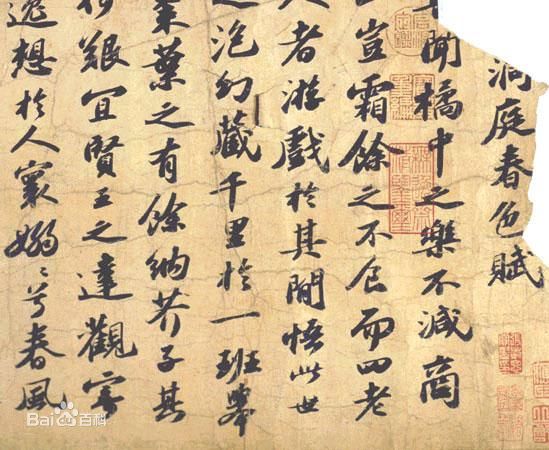 洞庭春色賦
聞橘中之樂不減商
豈霜餘之不食而四老
人者游戲於其間悟此世
之泡幻藏千里於一班舉
棗葉之有餘納芥子其
何艱宜賢王之達觀寄
逸想於人寰嫋〻兮春風
Bai百科